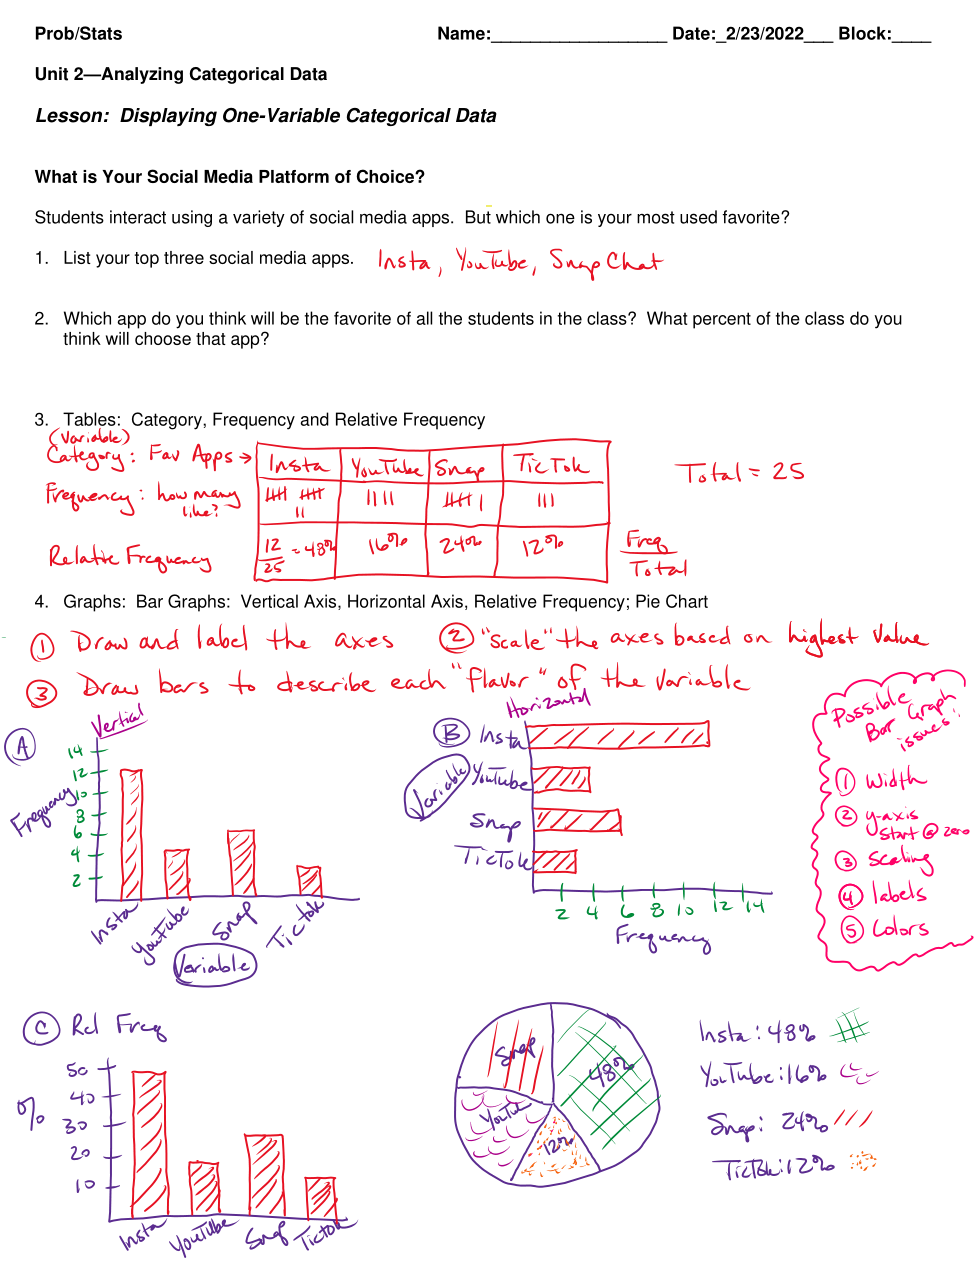 Prob/Stats Name:__________________ Date:_2/23/2022___ Block:____
Unit 2—Analyzing Categorical Data
Lesson: Displaying One-Variable Categorical Data
What is Your Social Media Platform of Choice?
Students interact using a variety of social media apps. But which one is your most used favorite?
1. List your top three social media apps. Insta, YouTube, SnapChat
2. Which app do you think will be the favorite of all the students in the class? What percent of the class do you
think will choose that app?
3. Tables: Category, Frequency and Relative Frequency
(Variable)
Category: Fav Apps → Insta YouTube Snap TicTok
Total = 25
Frequency: how many
like?
Relative Frequency 12/25 = 48% 16% 24% 12% Freq/Total
4. Graphs: Bar Graphs: Vertical Axis, Horizontal Axis, Relative Frequency; Pie Chart
① Draw and label the axes ② "scale" the axes based on highest value
③ Draw bars to describe each "flavor" of the variable
Ⓐ Vertical
Frequency
14
12
10
8
6
4
2
Insta YouTube Snap Tictok
Variable
Ⓑ Horizontal
Variable
Insta
YouTube
Snap
TicTok
2 4 6 8 10 12 14
Frequency
Possible
Bar Graph
issues!
① Width
② y-axis
start @ zero
③ Scaling
④ labels
⑤ Colors
Ⓒ Rel Freq
%
50
40
30
20
10
Insta YouTube Snap Tictok
Snap
48%
YouTube
12%
Insta: 48%
YouTube: 16%
Snap: 24%
TicTok: 12%